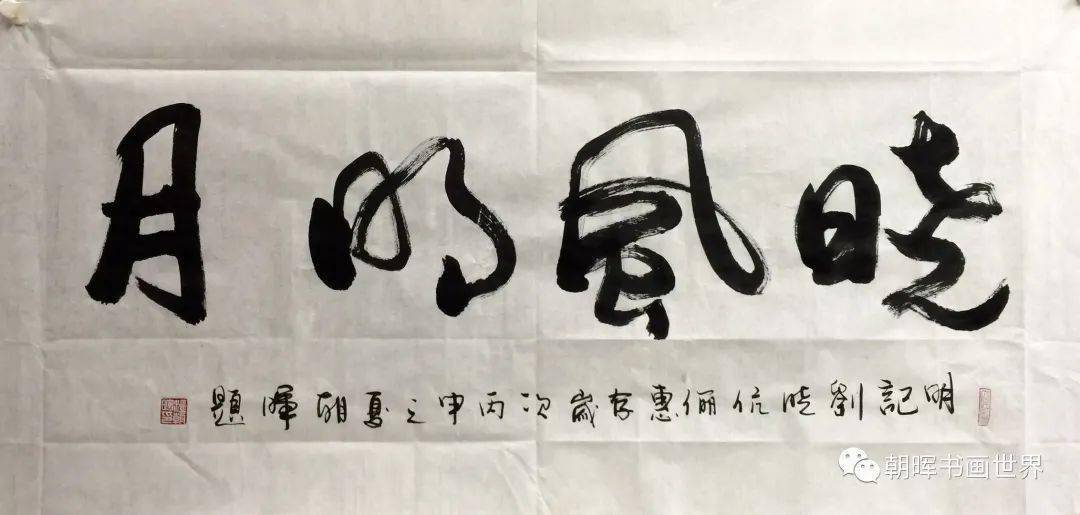 晓風明月
明記劉晓伉俪惠存歲次丙申之夏朝暉題
朝晖书画世界